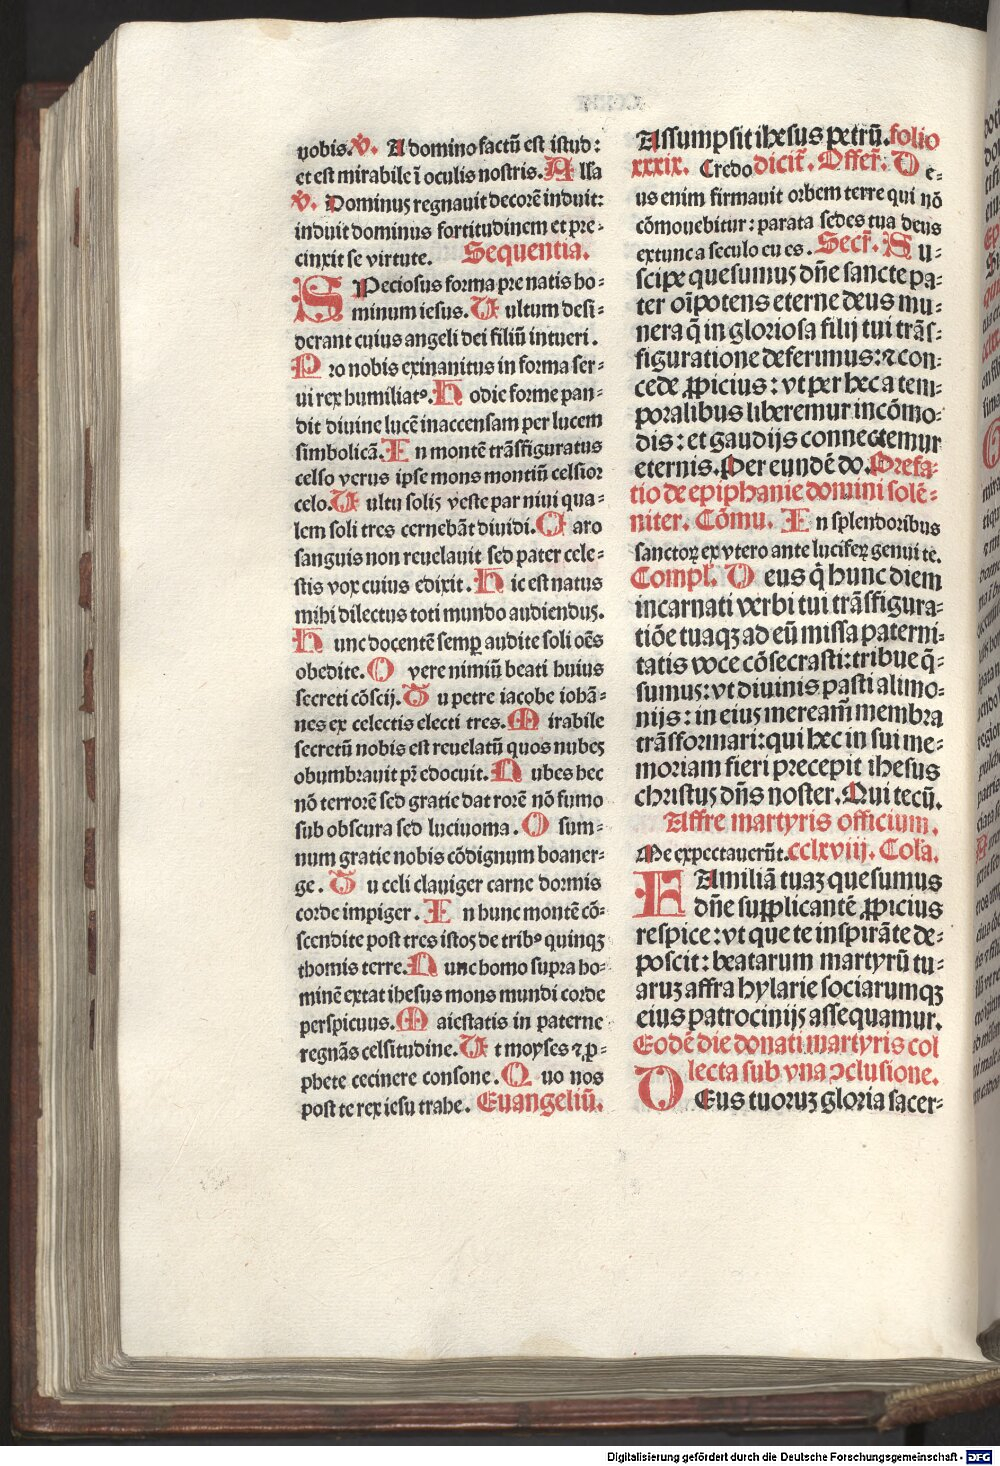 nobis. ℣. A domino factū est istud:
et est mirabile ī oculis nostris. Alla
℣. Dominus regnauit decorē induit:
induit dominus fortitudinem et pre-
cinxit se virtute. Sequentia.
SPeciosus forma pre natis ho-
minum iesus. Vultum desi-
derant cuius angeli dei filiū intueri.
Pro nobis exinanitus in forma ser-
ui rex humiliatꝰ. Hodie forme pan-
dit diuine lucē inaccensam per lucem
simbolicā. En montē trāsfiguratus
celso verus ipse mons montiū celsior
celo. Vultu solis veste par niui qua-
lem soli tres cernebāt diuidi. Caro
sanguis non reuelauit sed pater cele-
stis vox cuius edixit. Hic est natus
mihi dilectus toti mundo audiendus.
Hunc docentē semp audite soli oēs
obedite. O vere nimiū beati huius
secreti cōscij. Tu petre iacobe iohā-
nes ex celectis electi tres. Mirabile
secretū nobis est reuelatū quos nubes
obumbrauit pr̄ edocuit. Nubes hec
nō terrorē sed gratie dat rorē nō fumo
sub obscura sed luciuoma. O sum-
num gratie nobis cōdignum boaner-
ge. Tu celi clauiger carne dormis
corde impiger. En hunc montē cō-
scendite post tres istos de tribꝰ quinqꝫ
thomis terre. Nunc homo supra ho-
minē extat ihesus mons mundi corde
perspicuus. Maiestatis in paterne
regnās celsitudine. Vt moyses ⁊ ꝓ-
phete cecinere consone. Quo nos
post te rex iesu trahe. Euangeliū.
Assumpsit ihesus petrū. folio
xxxix. Credo dicit᷑. Offer᷑. De-
us enim firmauit orbem terre qui nō
cōmouebitur: parata sedes tua deus
ex tunc a seculo cu es. Secr᷑. Su-
scipe quesumus dn̄e sancte pa-
ter oīpotens eterne deus mu-
nera q̄ in gloriosa filij tui trās-
figuratione deferimus: ⁊ con-
cede ꝓpicius: vt per hec a tem-
poralibus liberemur incōmo-
dis: et gaudijs connectemur
eternis. Per eundē do. Prefa-
tio de epiphanie domini solē-
niter. Cōmu. En splendoribus
sanctoꝝ ex vtero ante luciferꝫ genui te.
Compl᷑. Deus q̄ hunc diem
incarnati verbi tui trāsfigura-
tiōe tuaqꝫ ad eū missa paterni-
tatis voce cōsecrasti: tribue q̄-
sumus: vt diuinis pasti alimo-
nijs: in eius meream̄ membra
trāsformari: qui hec in sui me-
moriam fieri precepit ihesus
christus dn̄s noster. Qui tecū.
Affre martyris officium.
Me expectauerūt. cclxviij. Col̄a.
FAmiliā tuaꝫ quesumus
dn̄e supplicantē ꝓpicius
respice: vt que te inspirāte de-
poscit: beatarum martyrū tu-
aruꝫ affra hylarie sociarumqꝫ
eius patrocinijs assequamur.
Eodē die donati martyris col
lecta sub vna ↄclusione.
DEus tuoruꝫ gloria sacer-
Digitalisierung gefördert durch die Deutsche Forschungsgemeinschaft - DFG